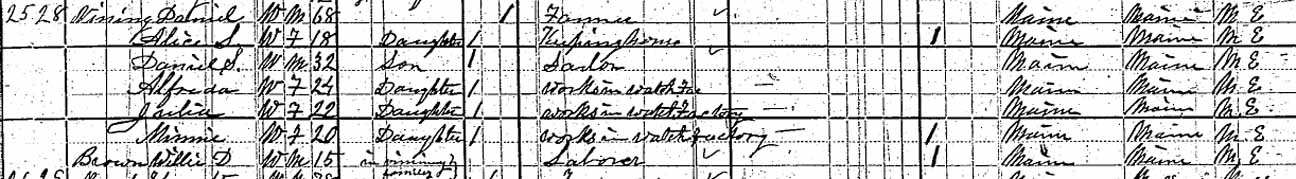 25 28 Vining Daniel W M 68 1 Farmer Maine Maine M.E
Alice S. W F 18 Daughter 1 Keeping house 1 Maine Maine M.E
Daniel S. W M 32 Son 1 Sailor Maine Maine M.E
Alfreda W F 24 Daughter 1 works in watch Fac Maine Maine M.E
Julia W F 22 Daughter 1 works in watch Factory Maine Maine M.E
Minnie W F 20 Daughter 1 works in watch factory 1 Maine Maine M.E
Brown Willie D W M 15 in vining family Laborer 1 Maine Maine M.E